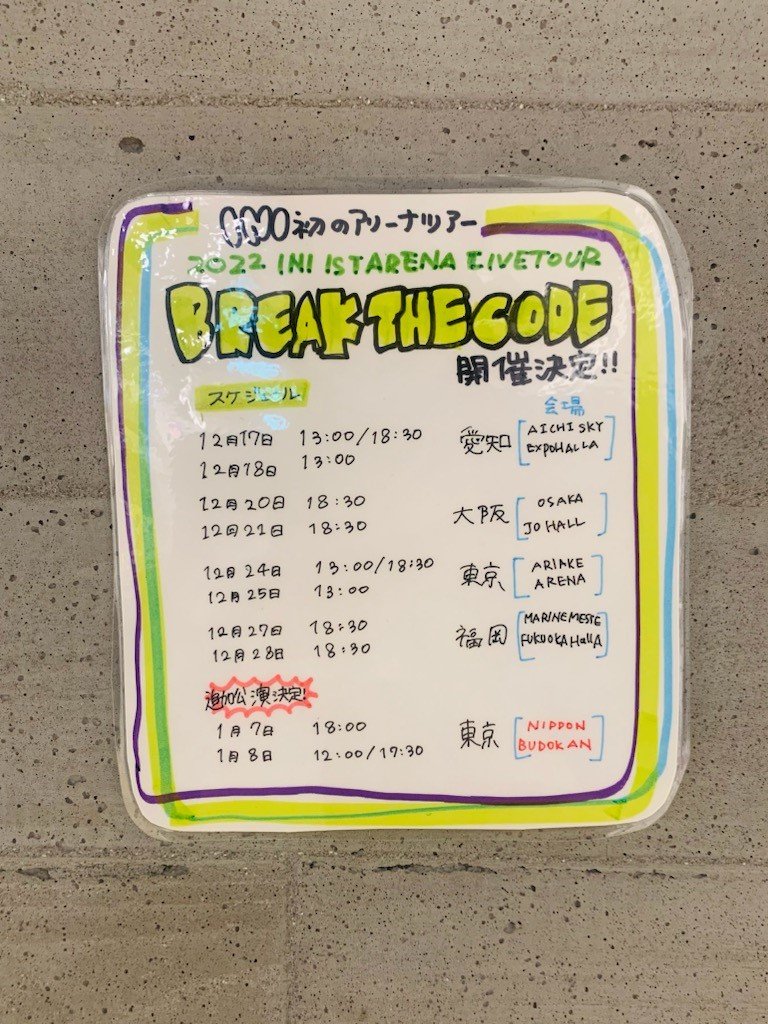 INI 初のアリーナツアー
2022 INI 1ST ARENA LIVE TOUR
BREAK THE CODE
開催決定!!
スケジュール
会場
12月17日 13:00/18:30 愛知 AICHI SKY
12月18日 13:00 EXPO HALL A
12月20日 18:30 大阪 OSAKA
12月21日 18:30 JO HALL
12月24日 13:00/18:30 東京 ARIAKE
12月25日 13:00 ARENA
12月27日 18:30 福岡 MARINEMESSE
12月28日 18:30 FUKUOKA HallA
追加公演決定!
1月7日 18:00 東京 NIPPON
1月8日 12:00/17:30 BUDOKAN